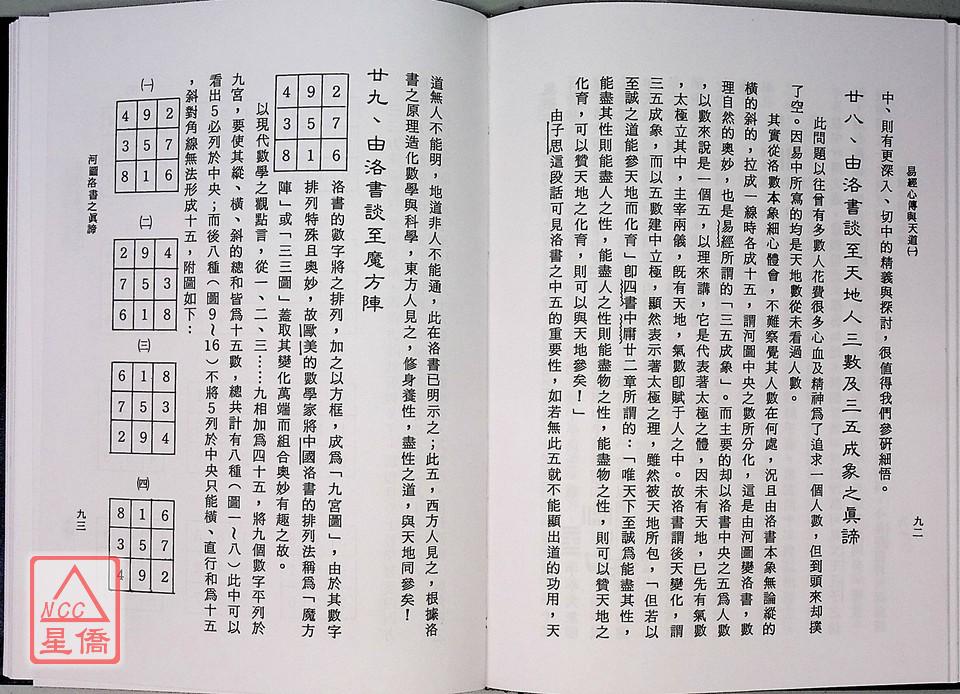 易經心傳與天道㈠
九二
中、則有更深入、切中的精義與探討，很值得我們參研細悟。
廿八、由洛書談至天地人三數及三五成象之眞諦
此問題以往曾有多數人花費很多心血及精神爲了追求一個人數，但到頭來却撲
了空。因易中所寫的均是天地數從未看過人數。
其實從洛數本象細心體會，不難察覺其人數在何處，況且由洛書本象無論縱的
橫的斜的，拉成一線時各成十五，謂河圖中央之數所分化，這是由河圖變洛書，數
理自然的奧妙，也是易經所謂的「三五成象」。而主要的却以洛書中央之五爲人數
，以數來說是一個五，以理來講，它是代表著太極之體，因未有天地，已先有氣數
，太極立其中，主宰兩儀，旣有天地，氣數卽賦于人之中。故洛書謂後天變化，謂
三五成象，而以五數建中立極，顯然表示著太極之理，雖然被天地所包，「但若以
至誠之道能參天地而化育」卽四書中庸廿二章所謂的：「唯天下至誠爲能盡其性，
能盡其性則能盡人之性，能盡人之性則能盡物之性，能盡物之性，則可以贊天地之
化育，可以贊天地之化育，則可以與天地參矣！」
由子思這段話可見洛書之中五的重要性，如若無此五就不能顯出道的功用，天
道無人不能明，地道非人不能通，此在洛書已明示之；此五，西方人見之，根據洛
書之原理造化數學與科學，東方人見之，修身養性，盡性之道，與天地同參矣！
廿九、由洛書談至魔方陣
4 9 2
3 5 7
8 1 6
洛書的數字將之排列，加之以方框，成爲「九宮圖」，由於其數字
排列特殊且奧妙，故歐美的數學家將中國洛書的排列法稱爲「魔方
陣」或「三三圖」蓋取其變化萬端而組合奧妙有趣之故。
以現代數學之觀點言，從一、二、三……九相加爲四十五，將九個數字平列於
九宮，要使其縱、橫、斜的總和皆爲十五數，總共計有八種（圖一～八）此中可以
看出5必列於中央；而後八種（圖9～16）不將5列於中央只能橫、直行和爲十五
，斜對角線無法形成十五，附圖如下：
㈠
4 9 2
3 5 7
8 1 6
㈡
2 9 4
7 5 3
6 1 8
㈢
6 1 8
7 5 3
2 9 4
㈣
8 1 6
3 5 7
4 9 2
河圖洛書之眞諦
九三
NCC
星僑